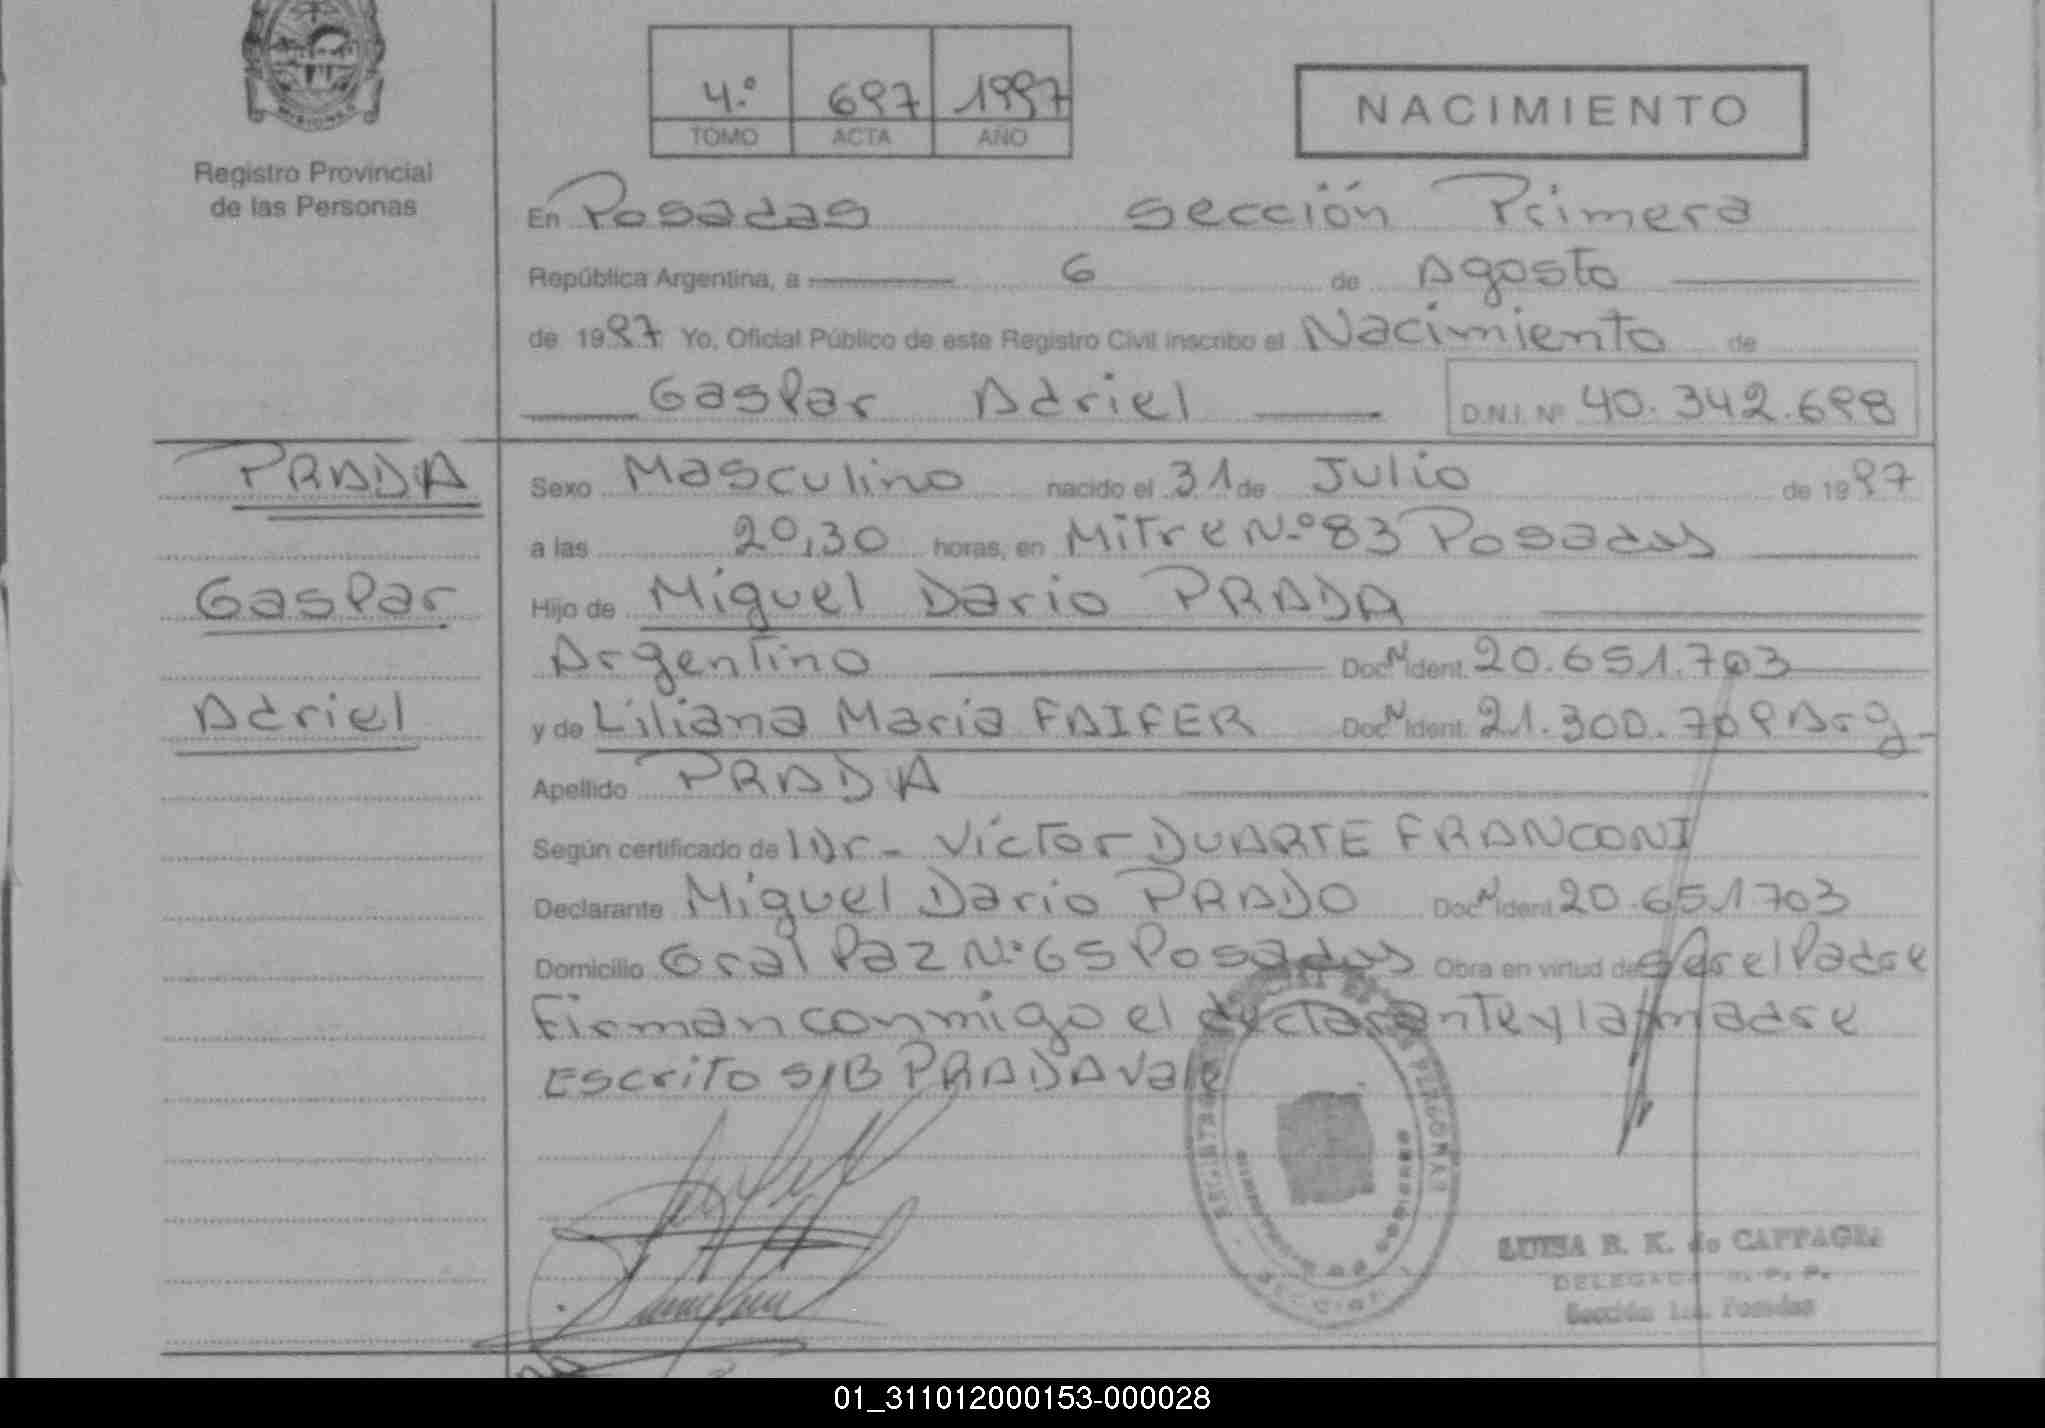 MISIONES
Registro Provincial
de las Personas
4.º 697 1997
TOMO ACTA AÑO
NACIMIENTO
En Posadas sección Primera
República Argentina, a 6 de Agosto
de 1997 Yo, Oficial Público de este Registro Civil inscribo el Nacimiento de
Gaspar Adriel D.N.I. Nº 40.342.698
PRADA
Gaspar
Adriel
Sexo Masculino nacido el 31 de Julio de 1997
a las 20,30 horas, en Mitre N.º 83 Posadas
Hijo de Miguel Dario PRADA
Argentino Doc. N Ident. 20.651.703
y de Liliana María FAIFER Doc. N Ident. 21.300.709 Arg.
Apellido PRADA
Según certificado de Dr. Víctor DUARTE FRANCONI
Declarante Miguel Dario PRADO Doc. N Ident. 20.651703
Domicilio Gral Paz N.º 65 Posadas Obra en virtud de ser el Padre
Firman conmigo el declarante y la madre
Escrito S/B PRADA Vale
LUISA B. K. de
DELEGADA R. P. P.
Sección 1ra. Posadas
01_311012000153-000028